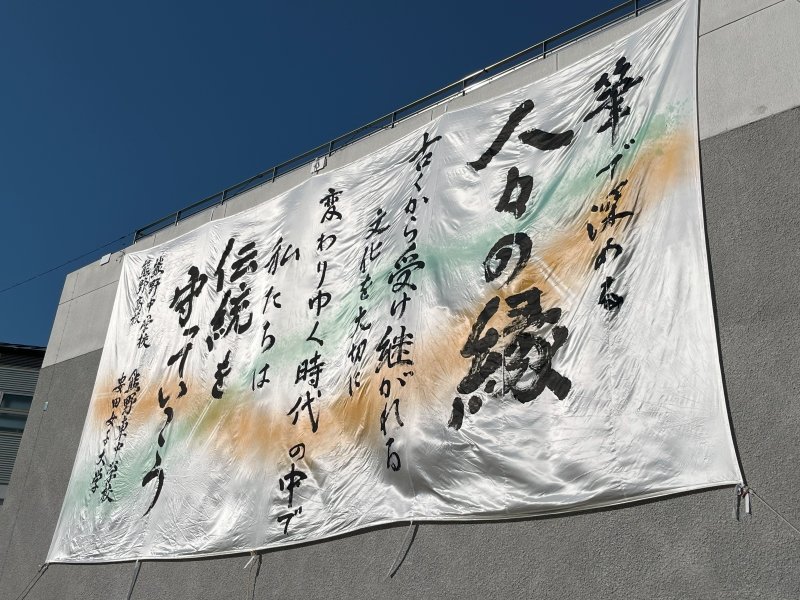 筆で深める
人々の縁
古くから受け継がれる
文化を大切に
変わりゆく時代の中で
私たちは
伝統を
守っていこう
熊野中学校
熊野東中学校
熊野高校
安田女子大学